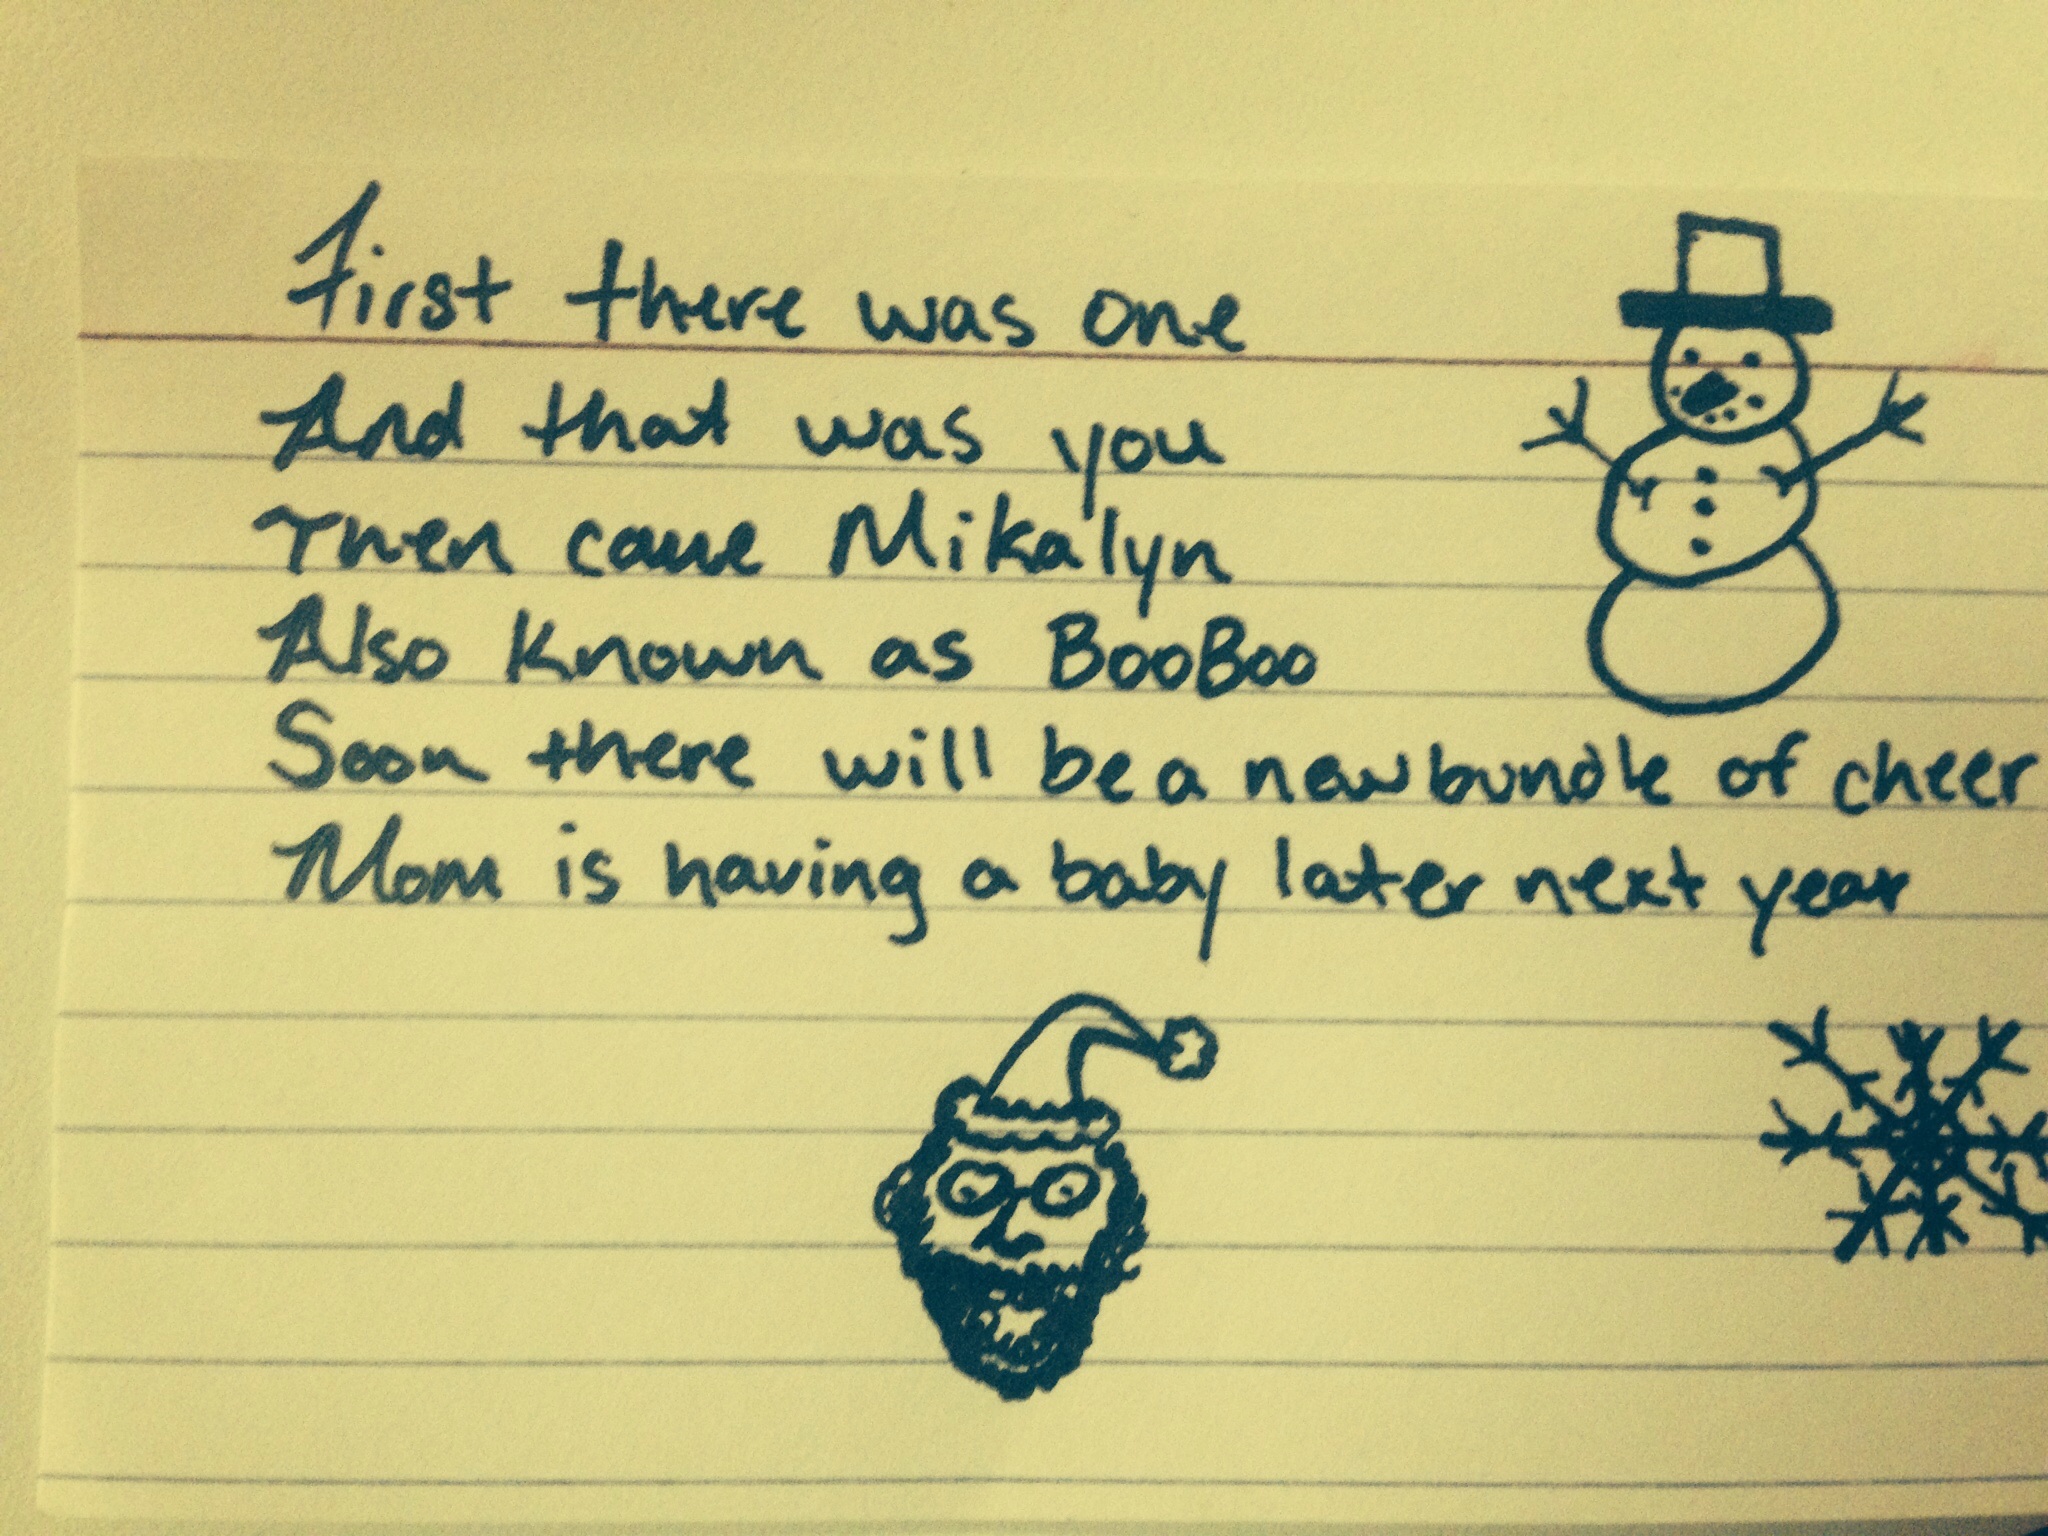 First there was one
And that was you
Then came Mikalyn
Also known as BooBoo
Soon there will be a new bundle of cheer
Mom is having a baby later next year